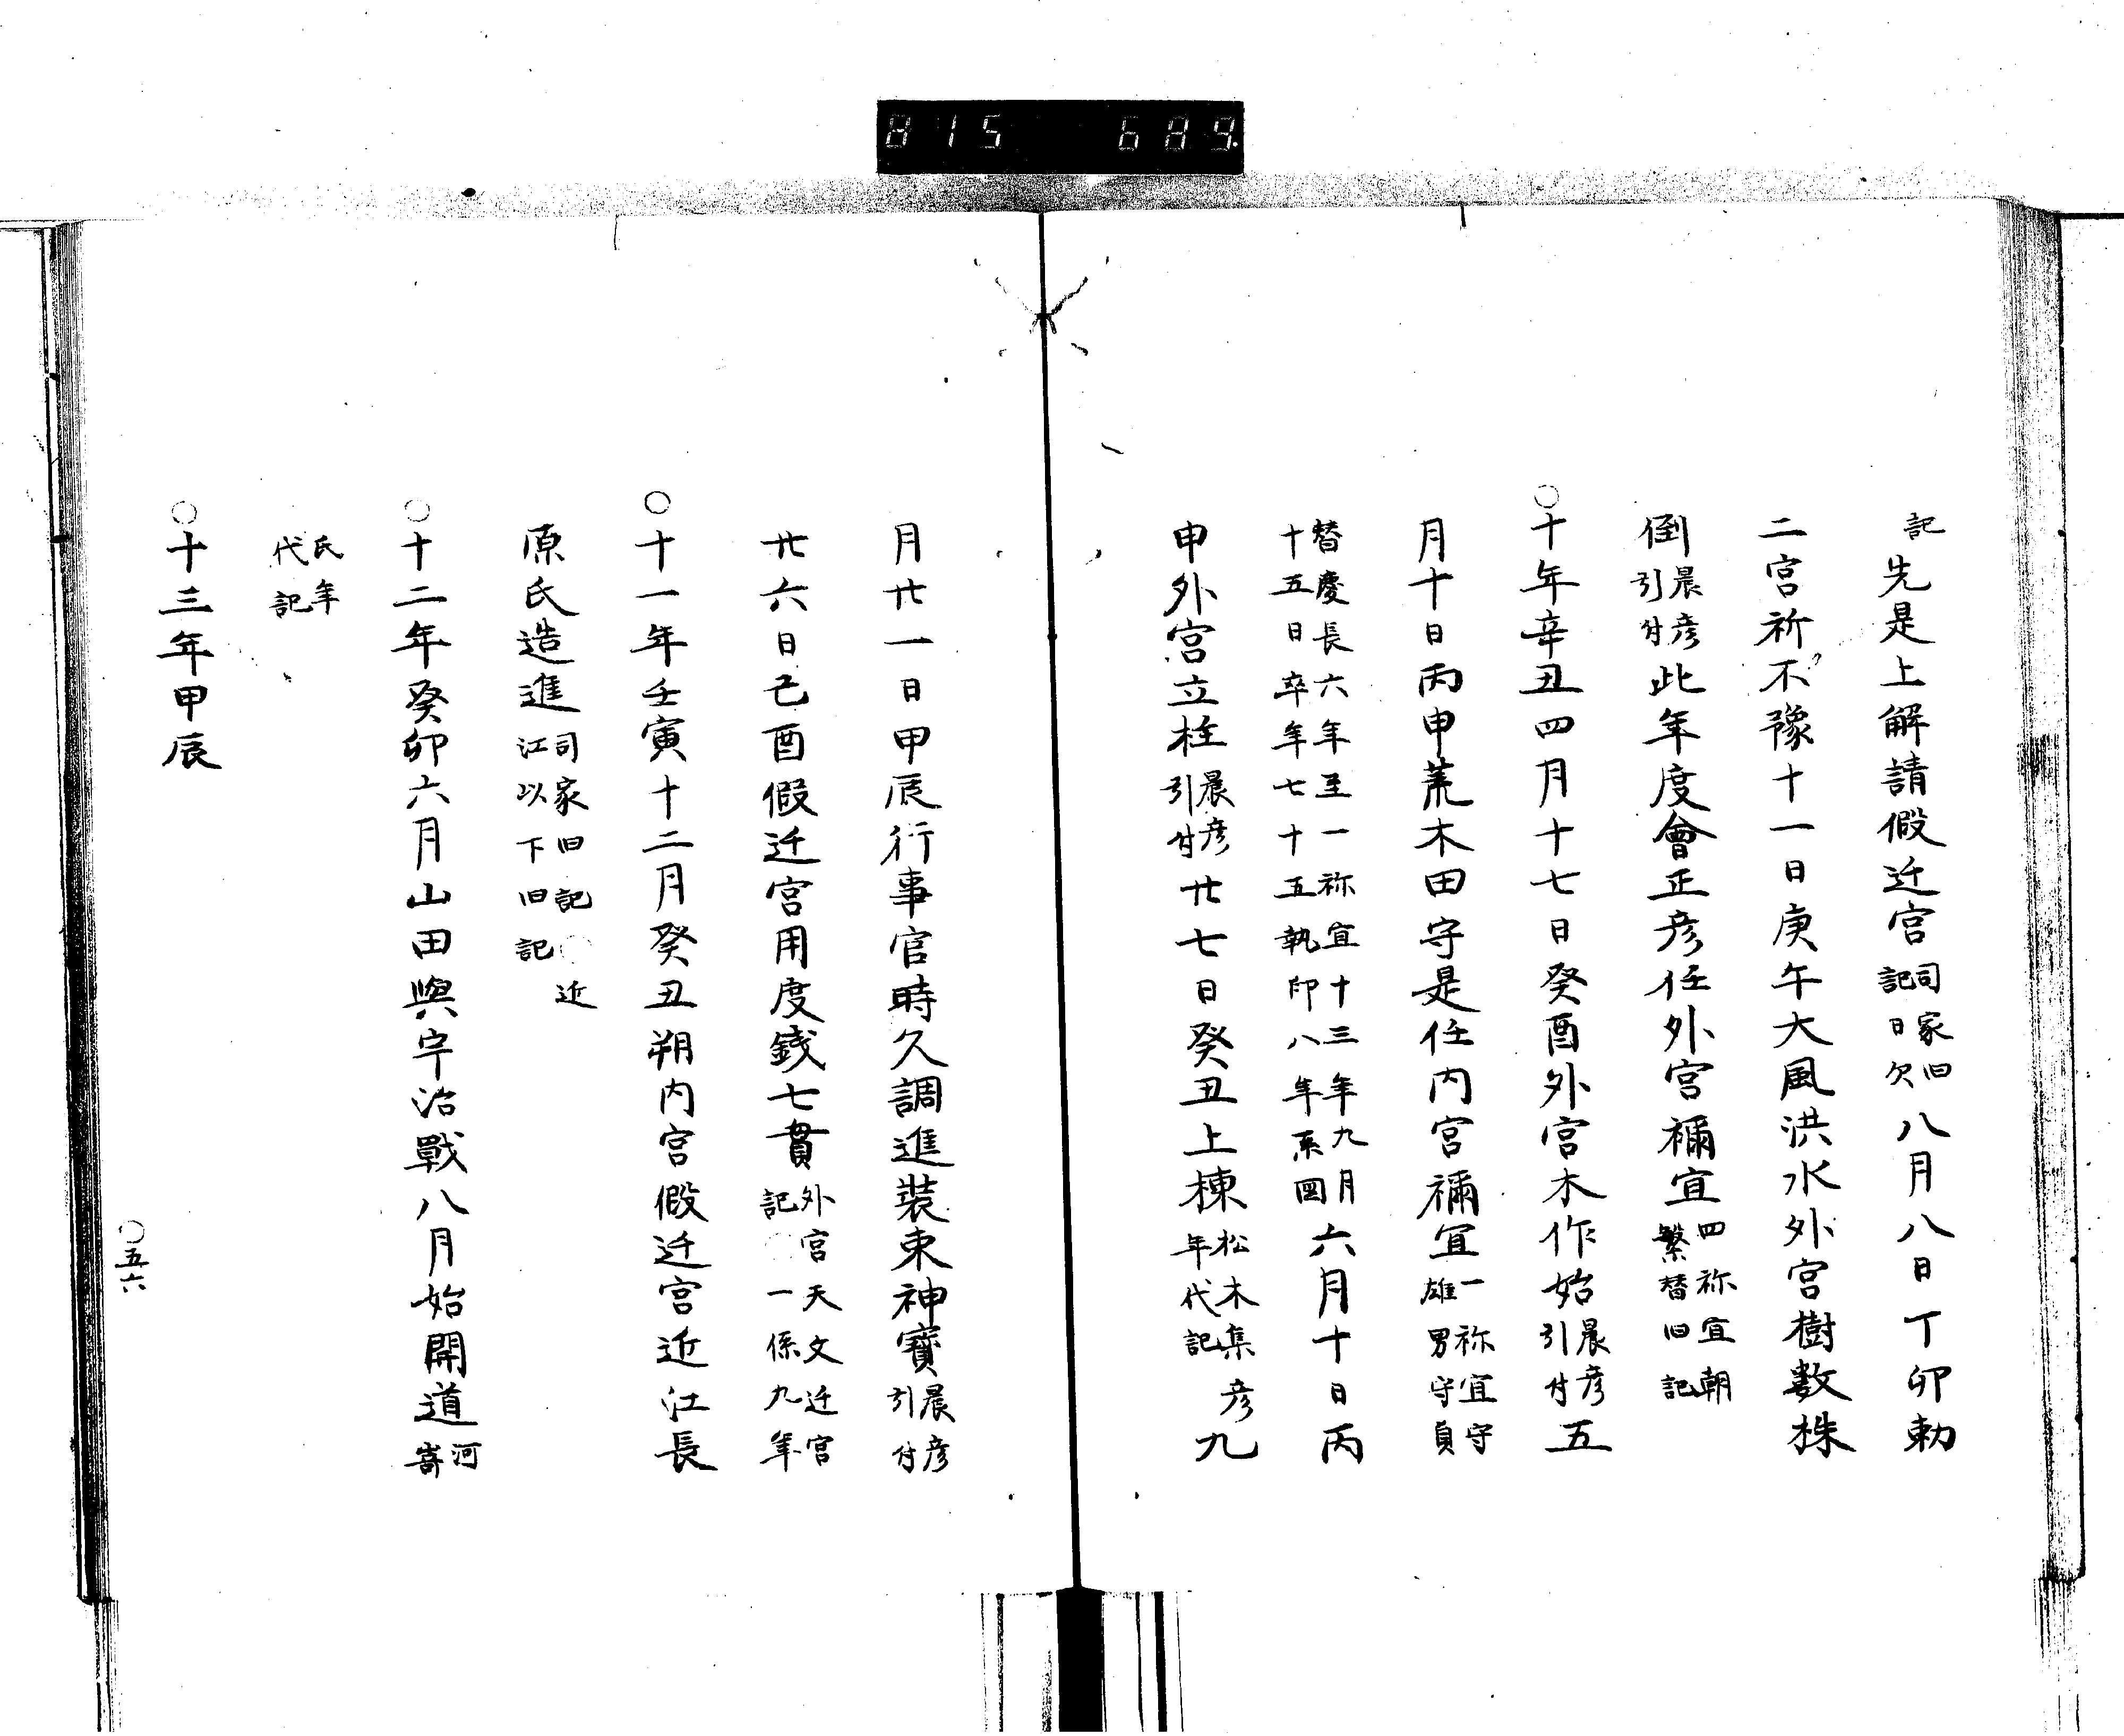 815 689
記先是上解請假迁宮司家旧記日欠八月八日丁卯勅
二宮祈不豫十一日庚午大風洪水外宮樹数株
倒晨彦引付此年度會正彦任外宮禰宜四祢宜朝繁替旧記
○十年辛丑四月十七日癸酉外宮木作始晨彦引付五
月十日丙申荒木田守是任内宮禰宜一祢宜守雄男守貞
替慶長六年至一祢宜十三年九月十五日卒年七十五執印八年系図六月十日丙
申外宮立柱晨彦引付廿七日癸丑上棟松木集彦年代記九
月廿一日甲辰行事官時久調進装束神寶晨彦引付
廿六日己酉假迁宮用度錢七貫外宮天文迁宮記○一係九年
○十一年壬寅十二月癸丑朔内宮假迁宮近江長
原氏造進司家旧記○近江以下旧記
○十二年癸卯六月山田與宇治戰八月始開道河嵜
氏年代記
○十三年甲辰
○五六